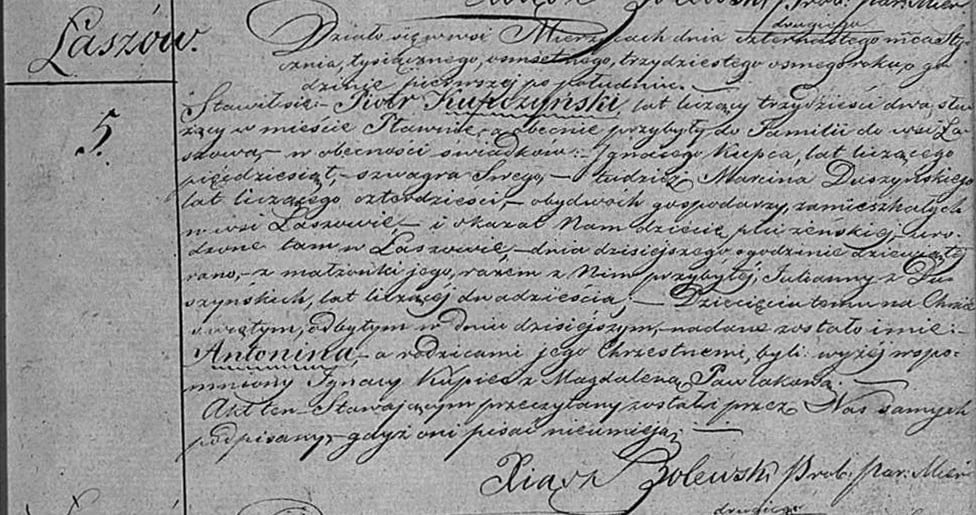 Xiądz Bolewski Prob: Par: Mier
Łaszów.
5.
drugiego
Działo się w wsi Mierzycach dnia czternastego m̃ca Sty-
cznia, tysiącznego, osmsetnego, trzydziestego osmego roku, o go-
dzinie pierwszej po południu.
Stawił się:- Piotr Kupczyński, lat liczący trzydzieści dwa, słu-
żący w mieście a obecnie przybyły do Familii do wsi Ła-
szowa,- w obecności świadków:- Ignacego Kupca, lat liczącego
pięćdziesiąt,- szwagra Swego,- tudzież Marcina Duszyńskiego
lat liczącego czterdzieści,- obydwóch gospodarzy, zamieszkałych
w wsi Łaszowie,- i okazał Nam dziecię płci żeńskiej, uro-
dzone tam w Łaszowie,- dnia dzisiejszego o godzinie dziewiątej
rano,- z małżonki jego, razem z Nim przybyłej, Julianny z Du-
szyńskich, lat liczącej dwadzieścia;- Dziecięciu temu na Chrzcie
świętym, odbytym w dniu dzisiejszym,- nadane zostało imie:-
Antonina,- a rodzicami jego Chrzestnemi, byli: wyżej wspo-
mniony Ignacy Kupiec z Magdaleną Pawlakową.
Akt ten Stawającym przeczytany został i przez Nas samych
podpisany,- gdyż oni pisać nieumieją;-
Xiądz Bolewski Prob: Par: Mier
drugiego